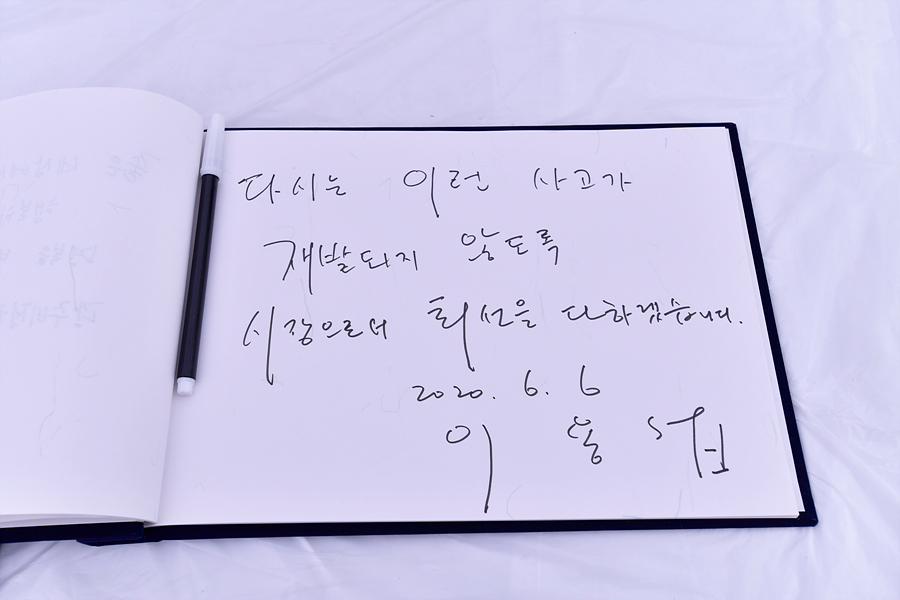 다시는 이런 사고가
재발되지 않도록
시장으로서 최선을 다하겠습니다.
2020. 6. 6
이 용 섭